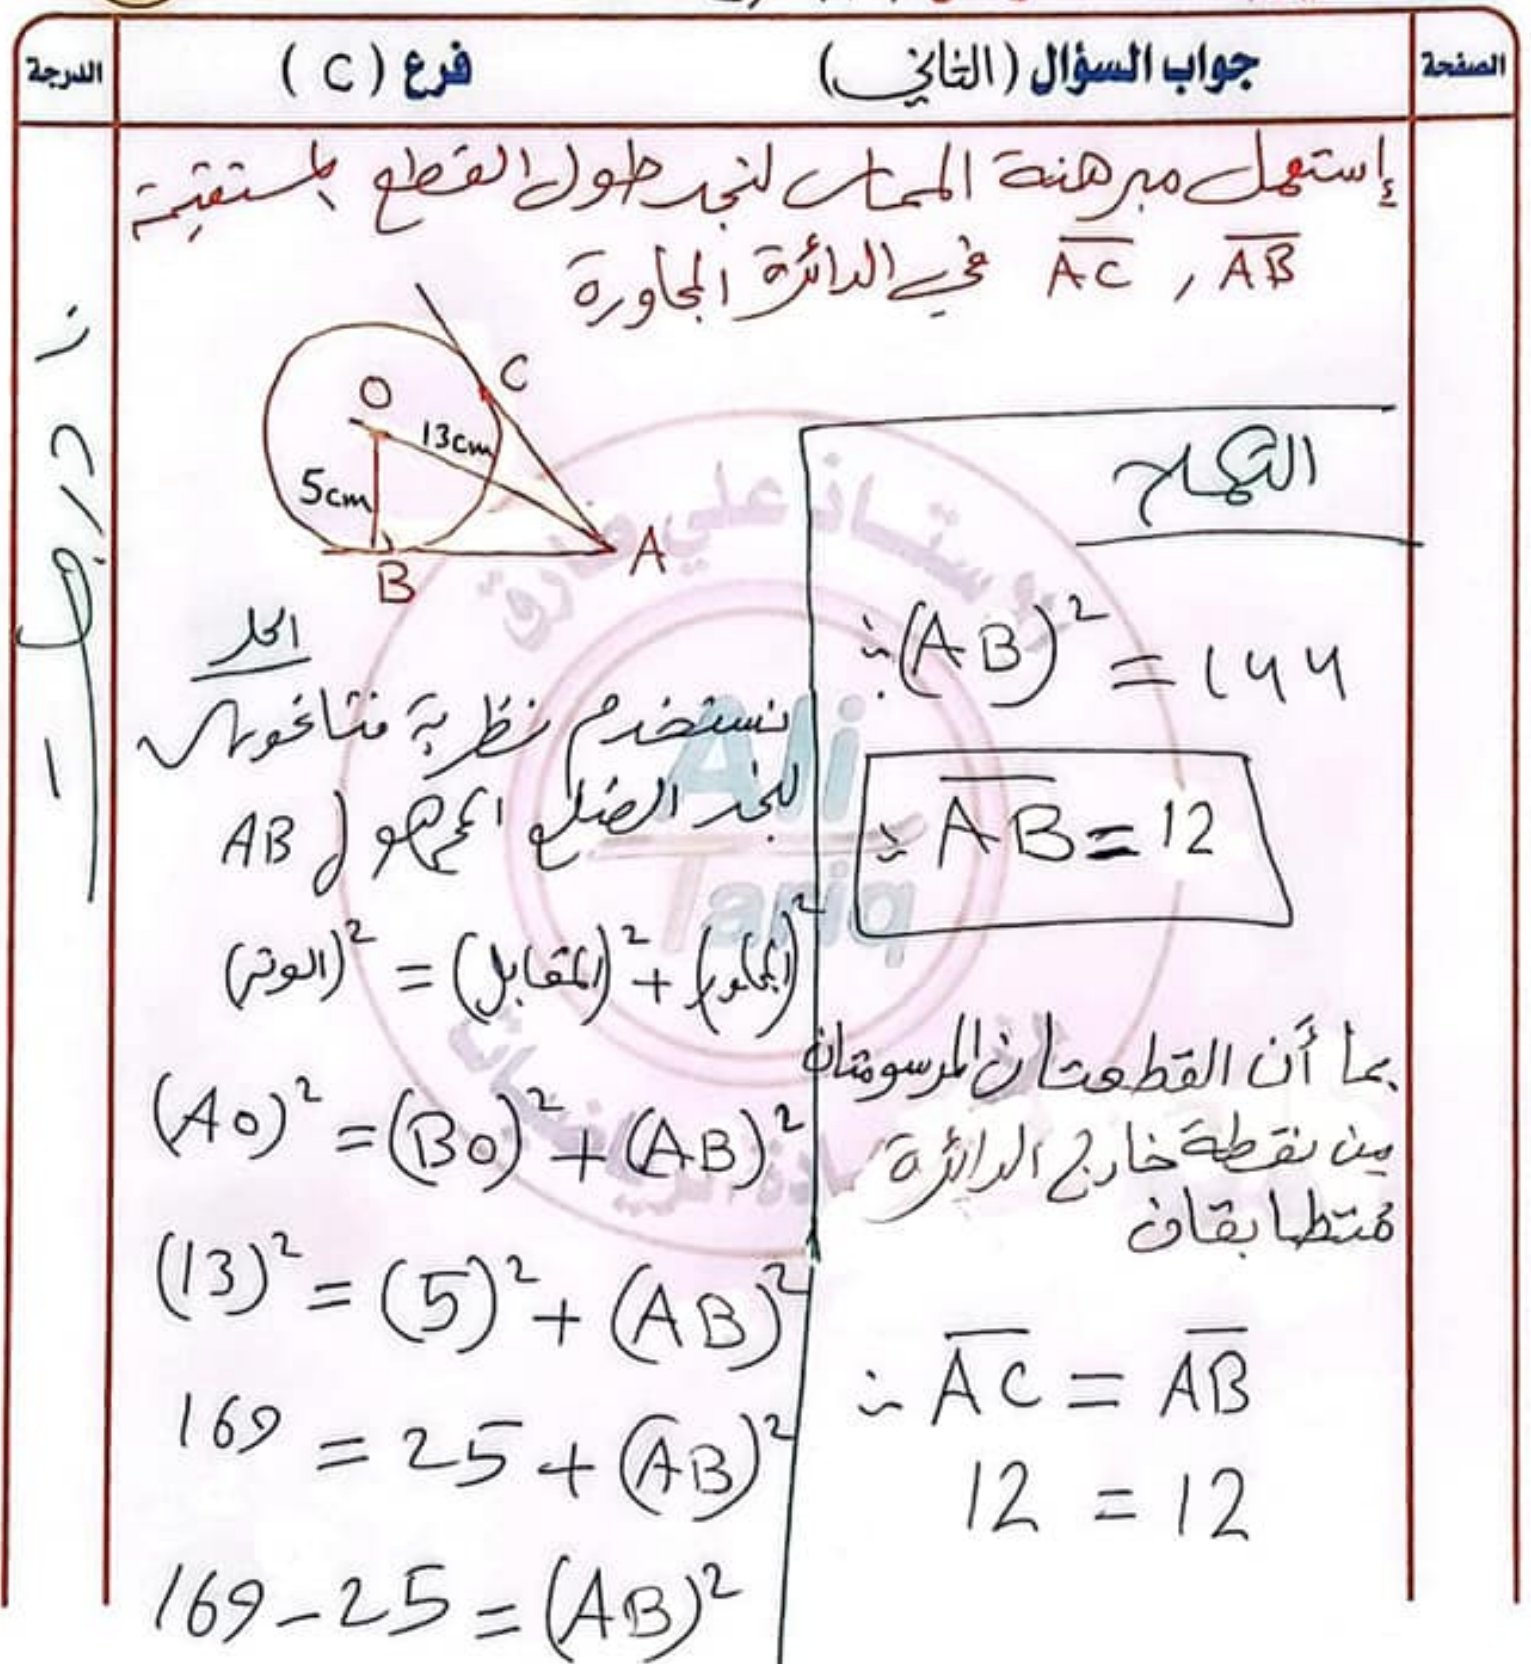 الصفحة
جواب السؤال (الثاني)
فرع (C)
الدرجة
إستعمل مبرهنة المماس لنجد طول القطع المستقيمة
AB , AC في الدائرة المجاورة
O
C
13cm
5cm
B
A
الحل
نستخدم نظرية فيثاغورس
لنجد الضلع المجهول AB
(الوتر)² = (المقابل)² + (المجاور)²
(AO)² = (BO)² + (AB)²
(13)² = (5)² + (AB)²
169 = 25 + (AB)²
169 - 25 = (AB)²
التكملة
∴ (AB)² = 144
∴ AB = 12
بما أن القطعتان المرسومتان
من نقطة خارج الدائرة
متطابقان
∴ AC = AB
12 = 12
درجات
الأستاذ علي طارق
Ali
Tariq